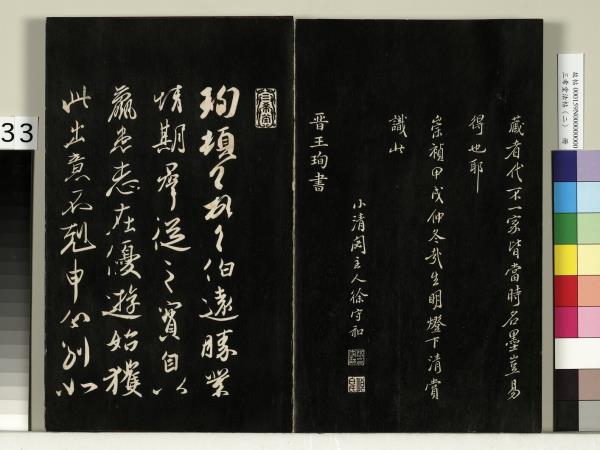 故帖 000159N000000000
三希堂法帖（二） 冊
藏者代不一家皆當時名墨豈易
得也耶
崇禎甲戌仲冬哉生明燈下清賞
識此
小清閟主人徐守和
晉王珣書
珣頓首頓首伯遠勝業
情期群從之寶自以
羸患志在優遊始獲
此出意不剋申分別如
33